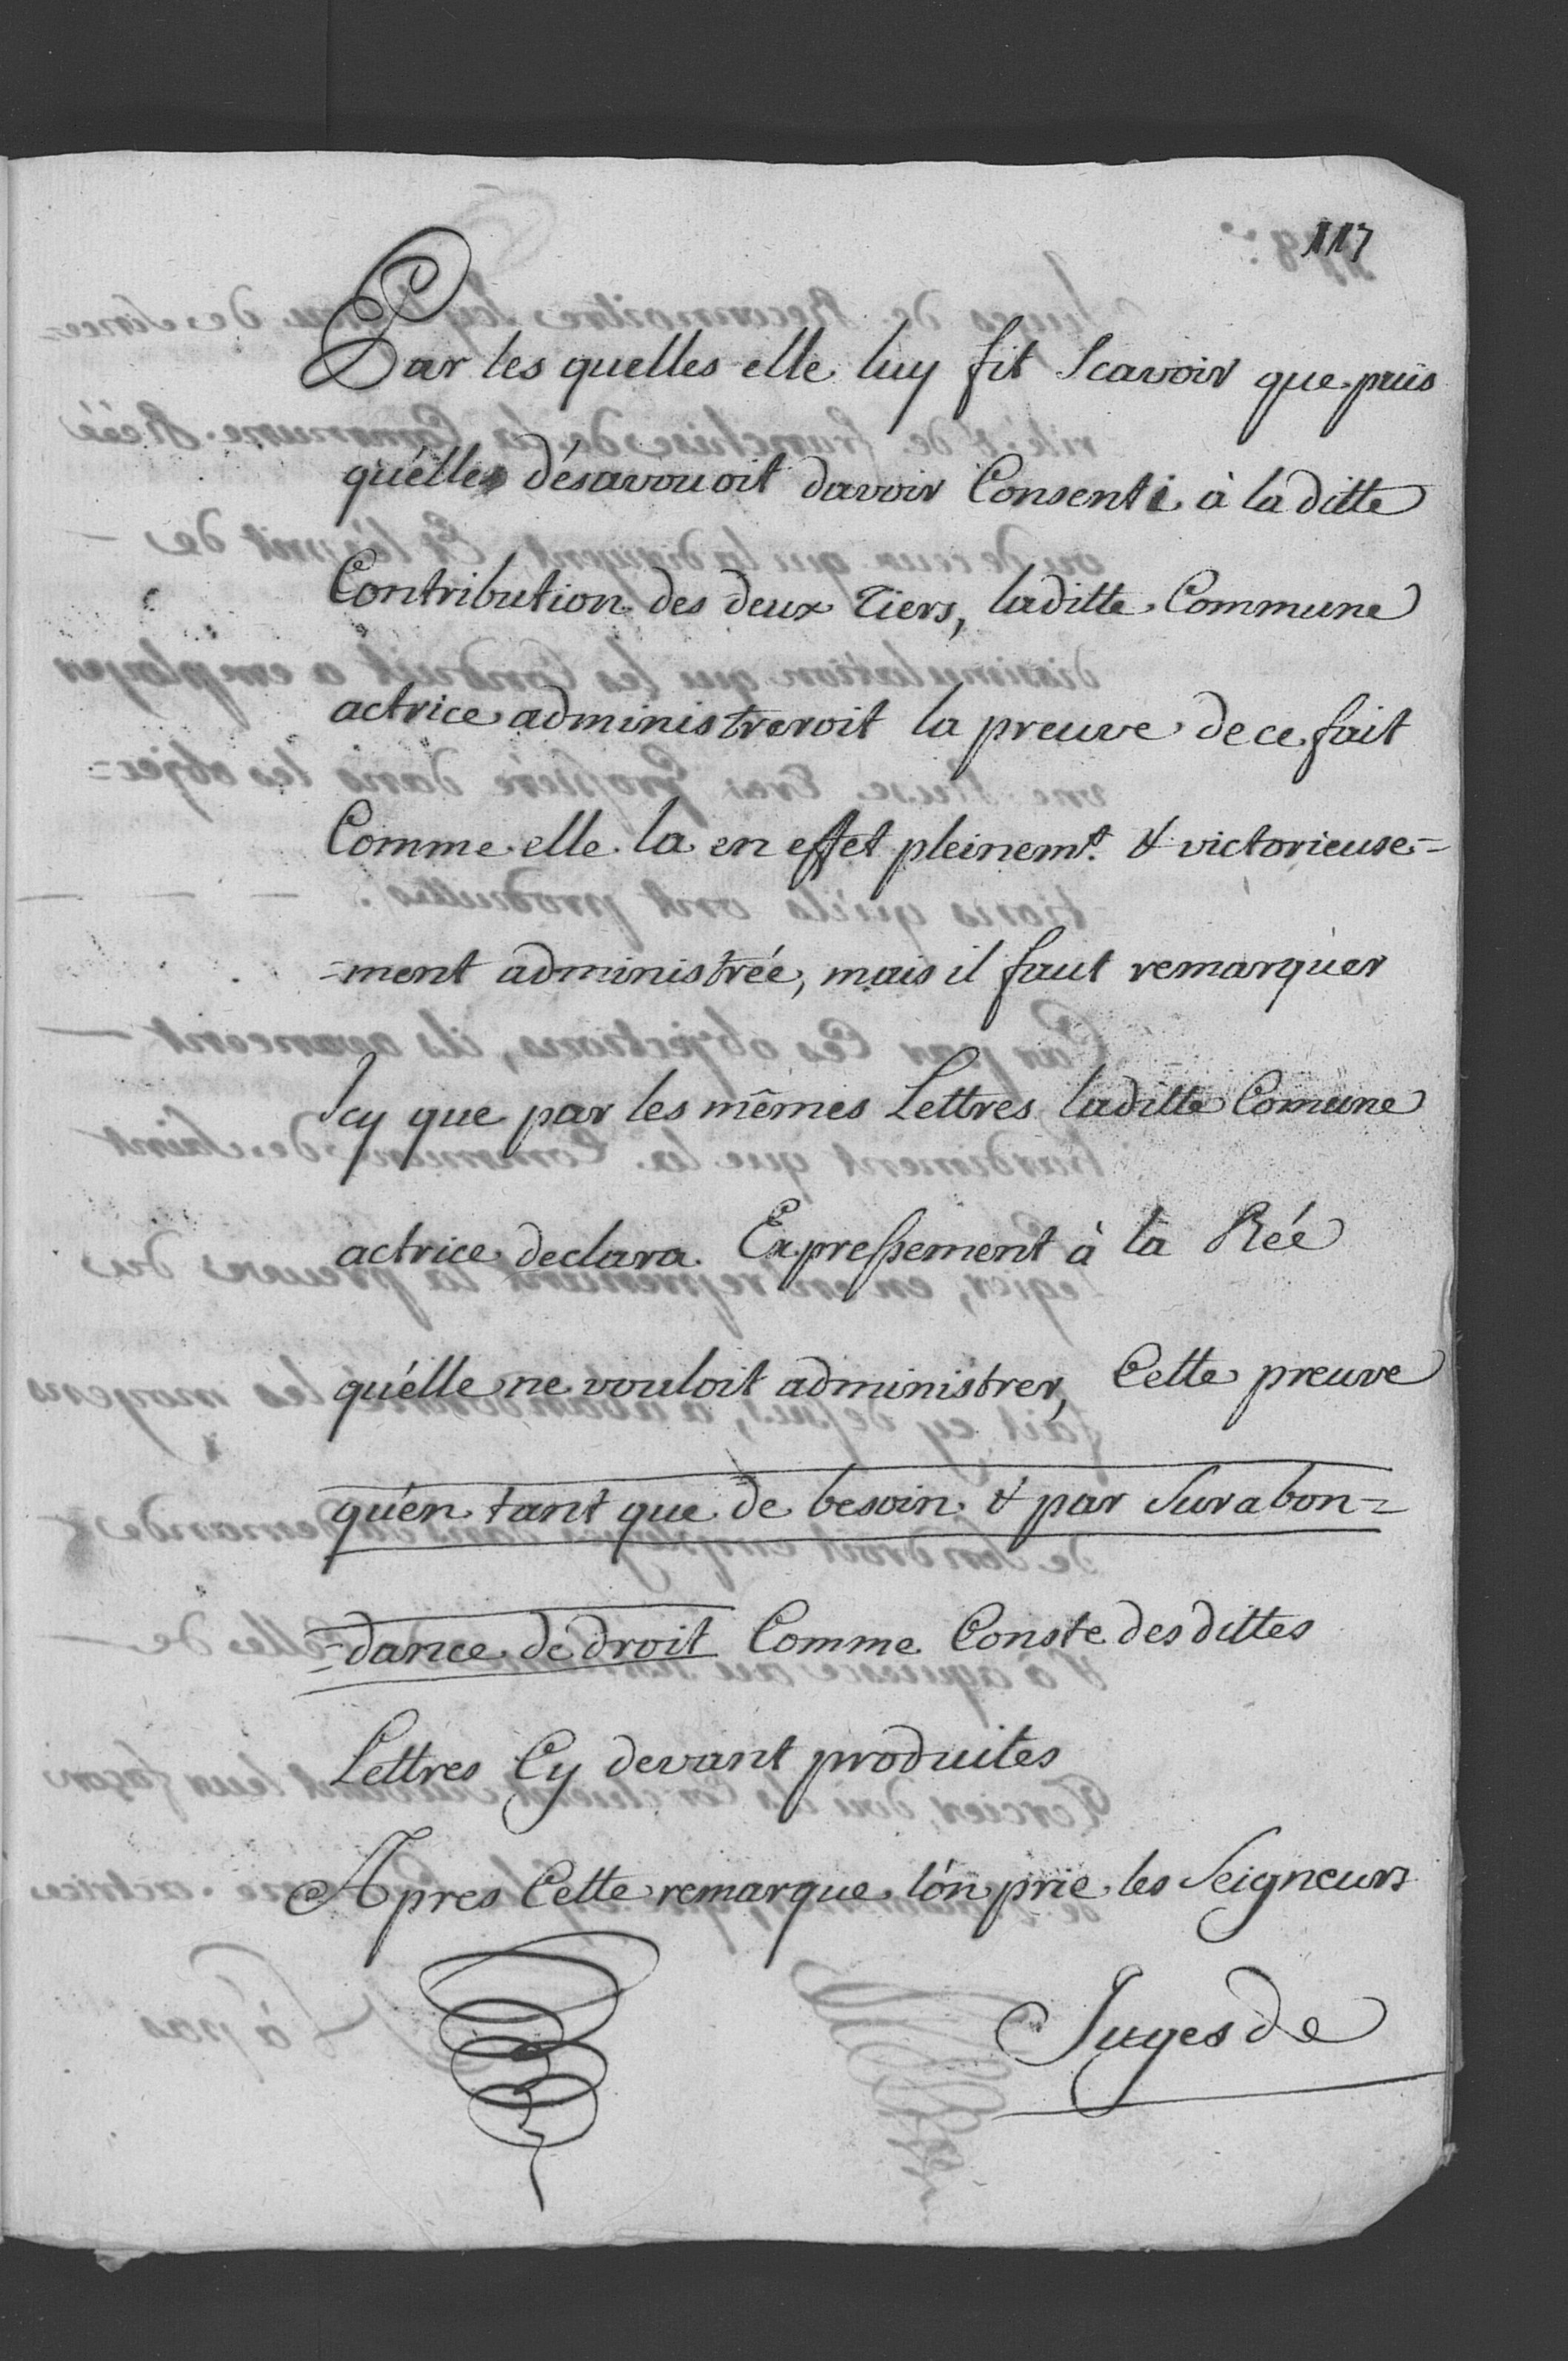 117
Par les quelles elle luy fit Scavoir que puis
qu'élles désavouoit davoir Consenti à laditte
Contribution des deux Tiers, laditte Commune
actrice administreroit la preuve de ce fait
Comme elle la en effet pleinemt. & victorieuse=
=ment administrée, mais il faut remarquer
Icy que par les mêmes Lettres laditte Comune
actrice declara Expressement à la Rée
qu'élle ne vouloit administrer, Cette preuve
qu'en tant que de besoin & par Surabon=
=dance de droit Comme Conste des dittes
Lettres Cy devant produites
Apres Cette remarque l'on prie les Seigneurs
Juges de